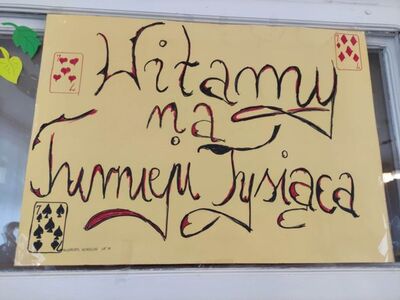 Witamy
na
Turnieju Tysiąca